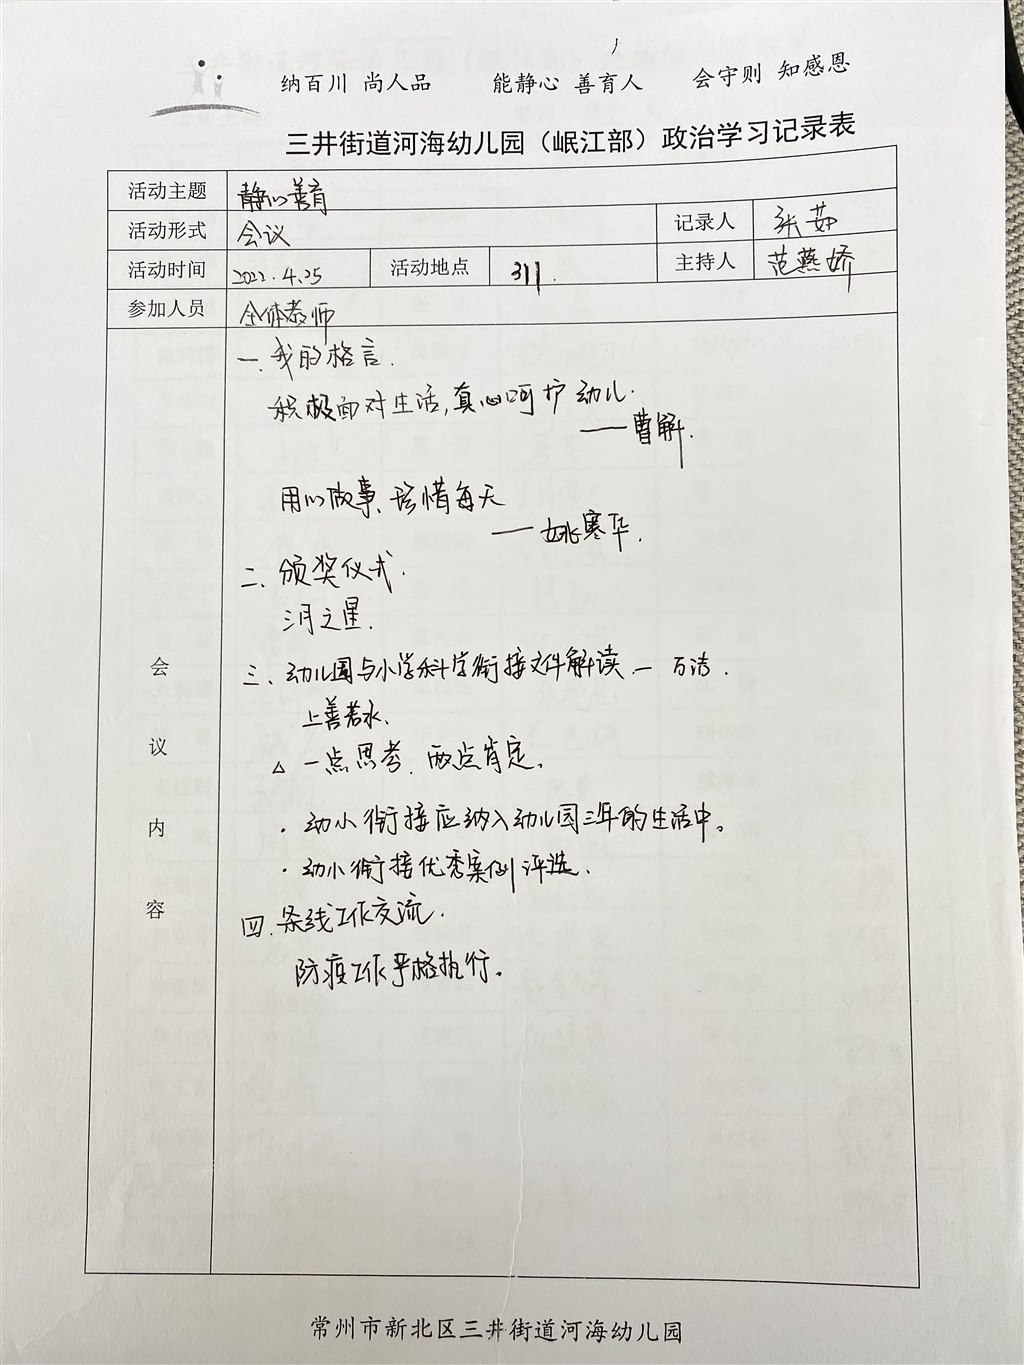 纳百川 尚人品 能静心 善育人 会守则 知感恩
三井街道河海幼儿园（岷江部）政治学习记录表
活动主题 静心善育
活动形式 会议 记录人 张茹
活动时间 2022.4.25 活动地点 311. 主持人 范燕娇
参加人员 全体教师
会议内容
一.我的格言.
积极面对生活,真心呵护幼儿.
——曹解.
用心做事、珍惜每天
——姚寒华.
二、颁奖仪式.
三月之星.
三、幼儿园与小学科学衔接文件解读.— 万洁.
上善若水.
△ 一点思考.两点肯定。
·幼小衔接应纳入幼儿园三年的生活中。
·幼小衔接优秀案例评选.
四.条线工作交流.
防疫工作严格执行。
常州市新北区三井街道河海幼儿园